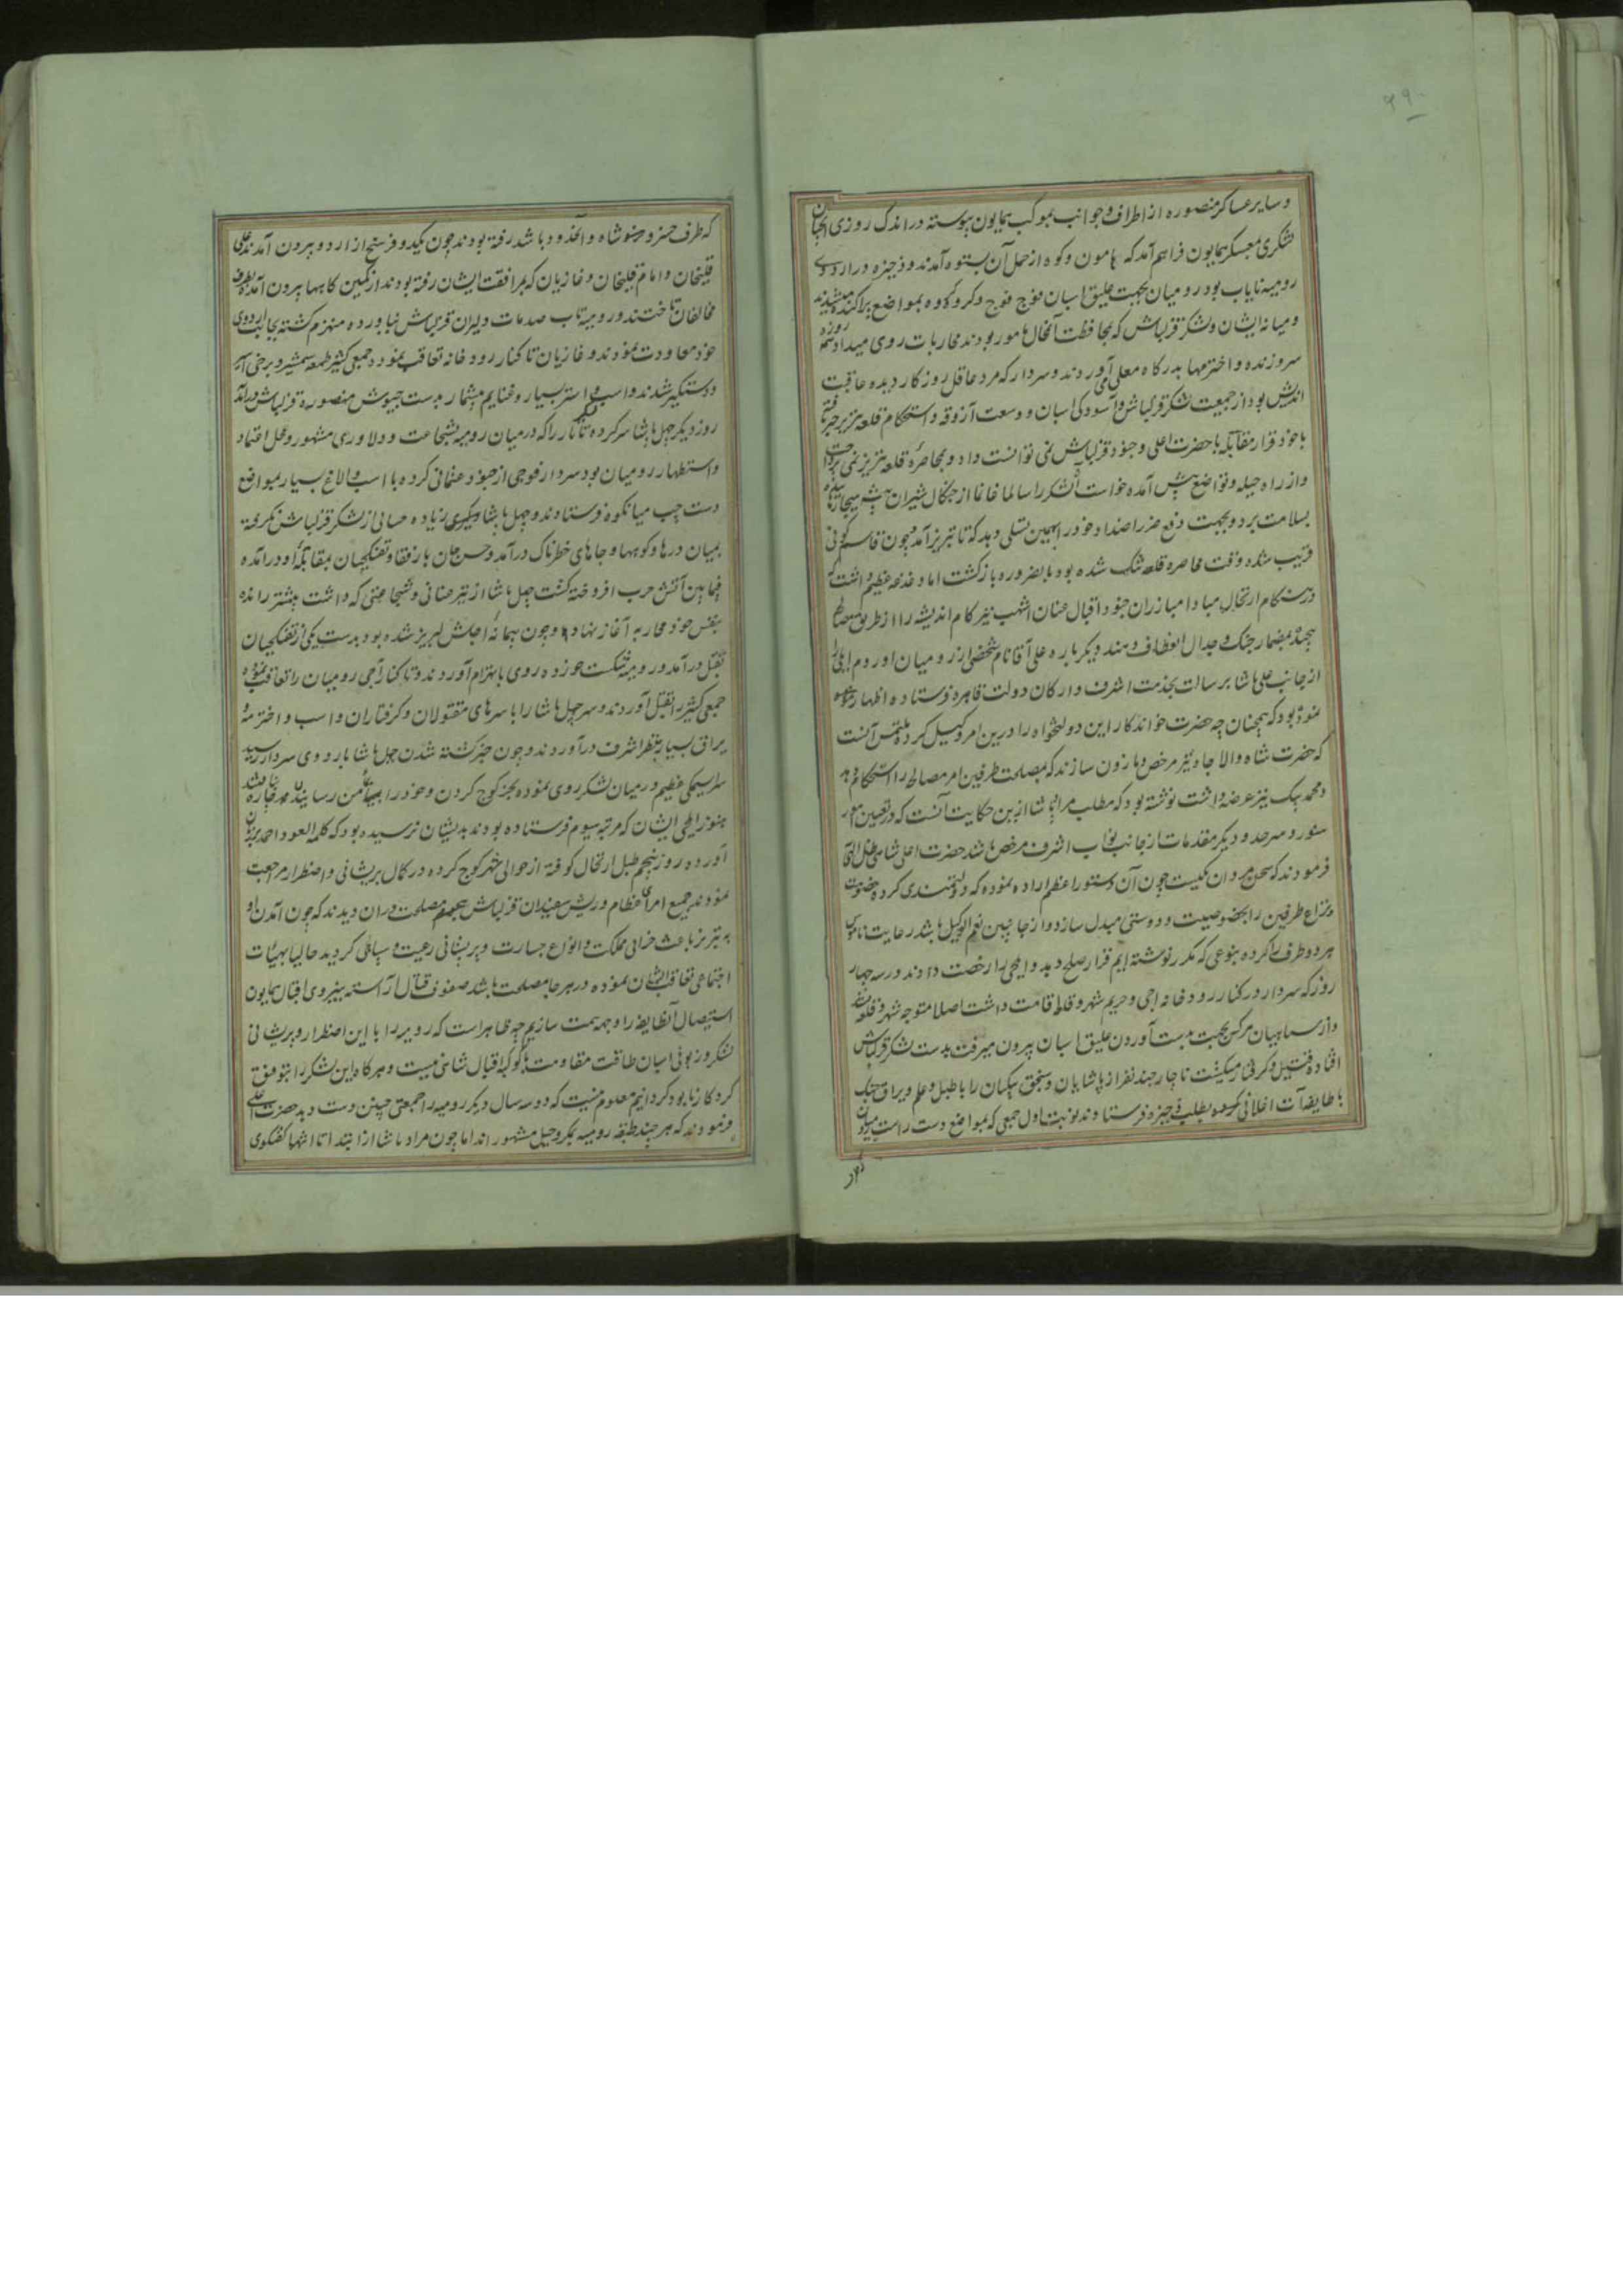 ۹۹۰
و سایر عساکر منصوره از اطراف و جوانب بموکب همایون پیوسته در اندک روزی
لشکری بمعسکر همایون فراهم آمد که هامون و کوه از حمل آن بستوه آمدند و ذخیره در اردوی
رومیه نایاب بود رومیان بجهت علیق اسبان فوج فوج و کروه کروه بمواضع پراکنده میشدند
و میانه ایشان و لشکر قزلباش که بمحافظت آنمحال مامور بودند محاربات روی میداد
سر و زنده و اخترمها بدرکاه معلی می آوردند و سردار که مرد عاقل روزکار دیده و عاقبت
اندیش بود از جمعیت لشکر قزلباش و آسودکی اسبان و وسعت آزوقه و استحکام قلعه تبریز
با خود قرار مقابله با حضرت اعلی و جنود قزلباش نمی توانست داد و بمحاصره قلعه تبریز نمی
و از راه حیله و تواضع پیش آمده خواست آن لشکر را سالما غانما از چنکال شیران بیشه
بسلامت برد و بجهت دفع ضرر اضداد خود را بهمین تسلی دهد که تا تبریز آمد چون
قریب شده وقت محاصره قلعه تنک شده بود بالضروره بازکشت اما دغدغه عظیم داشت که
در هنکام ارتحال مبادا مبارزان جنود اقبال عنان اشهب تیزکام اندیشه را از طریق
بمضمار جنک و جدال انعطاف دهند دیکر باره علی آقا نام شخصی از رومیان
از جانب علی پاشا برسالت بخدمت اشرف و ارکان دولت قاهره فرستاده اظهار
نموده بود که همچنان چه حضرت خواندکار این دولتخواه را درین امر وکیل کرده ملتمس آنست
که حضرت شاه والا جاه نیز مرخص و ماذون سازند که بمصلحت طرفین امر مصالحه را استحکام دهد
و محمد بیک نیز عرضه داشت نوشته بود که مطلب مراد پاشا از این حکایت آنست که در تعیین امور
سنور و سرحد و دیکر مقدمات از جانب نواب اشرف مرخص باشد حضرت اعلی شاهی ظل اللهی
فرمودند که سخن مردان یکیست چون آن دستور اعظم اراده نموده که دولتمندی کرده خصومت
و نزاع طرفین را بخصوصیت و دوستی مبدل سازد و از جانبین نعم الوکیل باشد رعایت ناموس
هر دو طرف را کرده بنوعی که مکرر نوشته ایم قرار صلح دهد و ایلچی را رخصت دادند در سه چهار
روز که سردار در کنار رودخانه اجی و حریم شهر و قلعه اقامت داشت اصلا متوجه شهر و قلعه نشد
و از سپاهیان هر کس بجهت بدست آوردن علیق اسبان بیرون میرفت بدست لشکر قزلباش
افتاده قتیل و کرفتار میکشت ناچار چند نفر از پاشایان و سنجق بیکیان را با طبل و علم و یراق جنک
با طایفه بطلب ذخیره فرستادند نوبت اول جمعی که بمواضع دست راست
که طرف خسرو شاه و آنحدود باشد رفته بودند چون یکدو فرسخ از اردو بیرون آمدند علی
قلیخان و امام قلیخان و غازیان که بمرافقت ایشان رفته بودند از کمین کاهها بیرون آمده بطرف
مخالفان تاختند و رومیه تاب صدمات دلیران قزلباش نیاورده منهزم کشته بجانب اردوی
خود معاودت نمودند و غازیان تا کنار رودخانه تعاقب نموده جمعی کثیر طعمه شمشیر و برخی اسیر
و دستکیر شدند و اسب و استر بسیار و غنایم بیشمار بدست جیوش منصوره قزلباش درآمد
روز دیکر چهل پاشا سرکرده تاتار را که در میان رومیه بشجاعت و دلاوری مشهور و محل اعتماد
و استظهار رومیان بود سردار فوجی از جنود عثمانی کرده با اسب و الاغ بسیار بمواضع
دست چپ میانکوه فرستادند و چهل پاشا دلیری زیاده حسابی از لشکر قزلباش نکرفته
بمیان درها و کوهها و جاهای خطرناک درآمد و حسن خان با رفقا و تفنکچیان بمقابله او درآمده
فیمابین آتش حرب افروخته کشت چهل پاشا از تیز عنانی و شجاعتی که داشت پیشتر رانده
بنفس خود محاربه آغاز نهاد و چون پیمانه اجلش لبریز شده بود بدست یکی از تفنکچیان
بقتل درآمد و رومیه شکست خورده روی بانهزام آوردند و تا کنار آجی رومیان را تعاقب نموده
جمعی کثیر بقتل آوردند و سر چهل پاشا را با سرهای مقتولان و کرفتاران و اسب و اخترمه و
یراق بسیار بنظر اشرف درآوردند و چون خبر کشته شدن چهل پاشا باردوی سردار رسید
سراسیمکی عظیم در میان لشکر روی نموده بجز کوچ کردن و خود را بمامن رسانیدن چاره
هنوز ایلچی ایشان که مرتبه سیوم فرستاده بودند بدیشان نرسیده بود که کلمه العود احمد بزبان
آورده روز پنجم طبل ارتحال کوفته از حوالی شهر کوچ کرده در کمال پریشانی و اضطرار مراجعت
نمودند جمیع امرای عظام و ریش سفیدان قزلباش مصلحت در آن دیدند که چون آمدن او
به تبریز باعث خرابی مملکت و انواع جسارت و پریشانی رعیت و سپاهی کردید حالیا بهیات
اجتماعی تعاقب ایشان نموده در هر جا مصلحت باشد صفوف قتال آراسته بنیروی اقبال همایون
استیصال آنطایفه را وجهه همت سازیم چه ظاهر است که رومیه را با این اضطرار و پریشانی
لشکر و زبونی اسبان طاقت مقاومت با کوکبه اقبال شاهی نیست و هر کاه این لشکر را بتوفیق
کردکار نابود کردانیم معلوم نیست که دو سه سال دیکر رومیه را جمعیتی چنین دست دهد حضرت اعلی
فرمودند که هر چند طبقه رومیه بمکر و حیل مشهورند اما چون مراد پاشا از ابتدا تا انتها کفتکوی